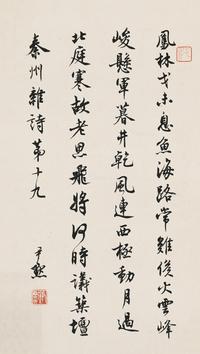 鳳林戈未息魚海路常難候火雲峰
峻懸軍幕井乾風連西極動月過
北庭寒故老思飛將何時議築壇
秦州雜詩第十九
尹默